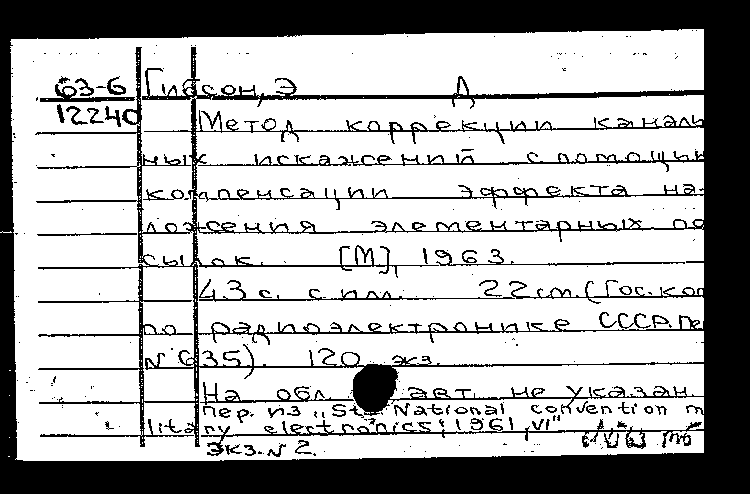 63-6 Гибсон, Э Д
12240 Метод коррекции каналь
ных искажений с помощью
компенсации эффекта на-
ложения элементарных по
сылок. [М], 1963.
43 с. с илл. 22 cm. (Гос. ком
по радиоэлектронике СССР. Пер
N 635). 120 экз.
На обл. авт. не указан.
Пер. из „5th National convention m
litary electronics; 1961, VI"
Экз. N 2.